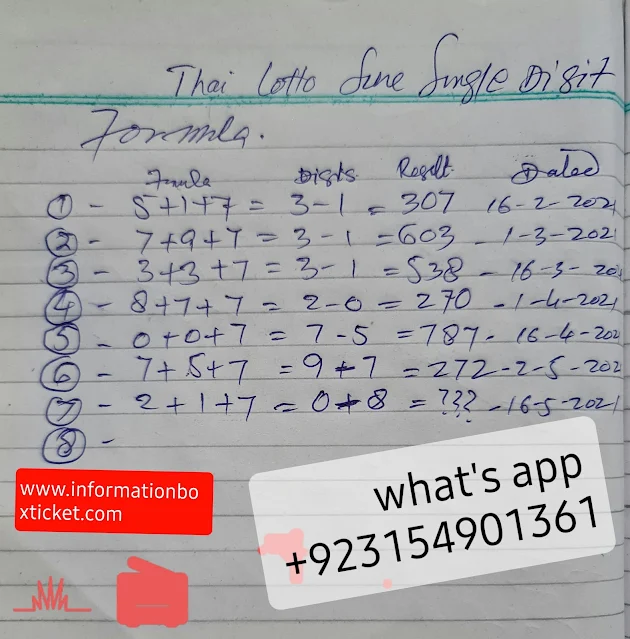 Thai Lotto Sure Single Digit
Formula.
Fomula Digits Result Dated
① - 5+1+7 = 3-1 = 307 16-2-2021
② - 7+9+7 = 3-1 = 603 - 1-3-2021
③ - 3+3+7 = 3-1 = 538 - 16-3-20
④ - 8+7+7 = 2-0 = 270 - 1-4-2021
⑤ - 0+0+7 = 7-5 = 787 - 16-4-202
⑥ - 7+5+7 = 9+7 = 272 - 2-5-202
⑦ - 2+1+7 = 0+8 = ??? - 16-5-2021
⑧ -
www.informationbo
xticket.com
what's app
+923154901361